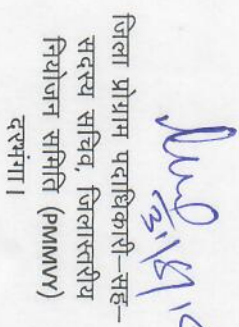 जिला प्रोग्राम पदाधिकारी–सह–
सदस्य सचिव, जिलास्तरीय
नियोजन समिति (PMMVY)
दरभंगा।